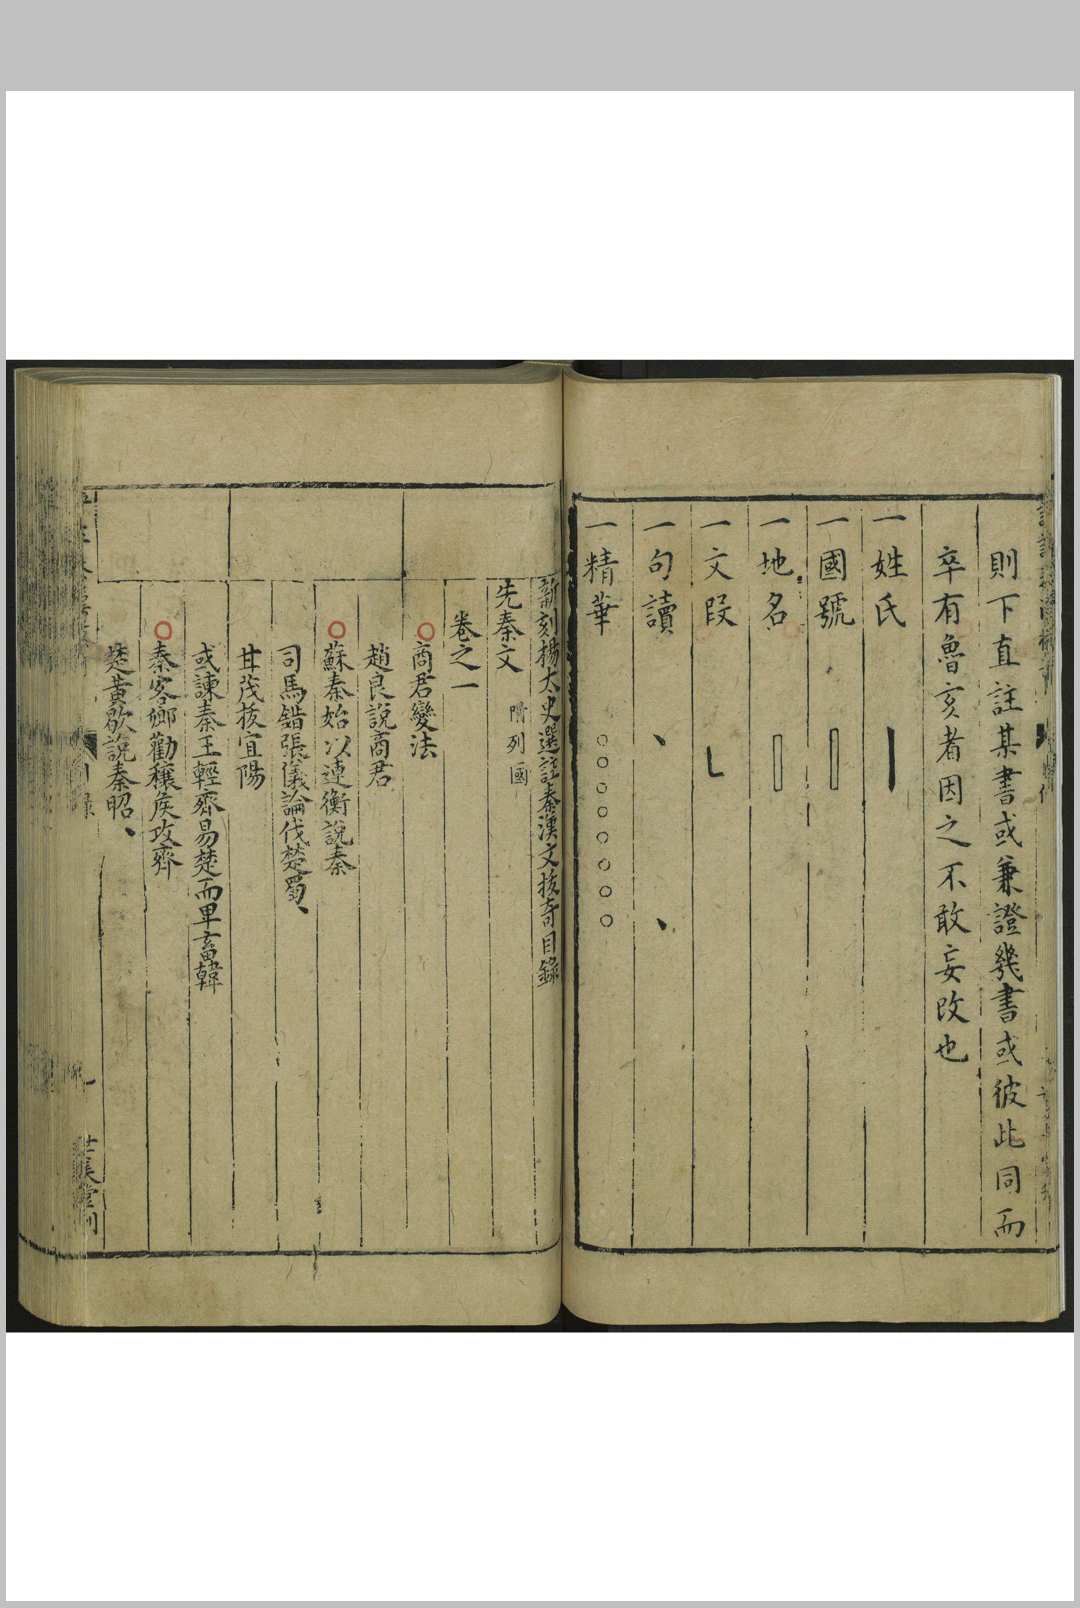 則下直註某書或兼證幾書或彼此同而
卒有魯亥者因之不敢妄改也
一姓氏
一國號
一地名
一文段
一句讀 、 、
一精華 ○○○○○○○○
新刻楊太史選註秦漢文拔奇目錄
先秦文 附列國
卷之一
○商君變法
趙良說商君
○蘇秦始以連衡說秦
司馬錯張儀論伐楚蜀、
甘茂拔宜陽
或諫秦王輕齊易楚而卑畜韓
○秦客卿勸穰侯攻齊
楚黃歇說秦昭、
世美堂刊